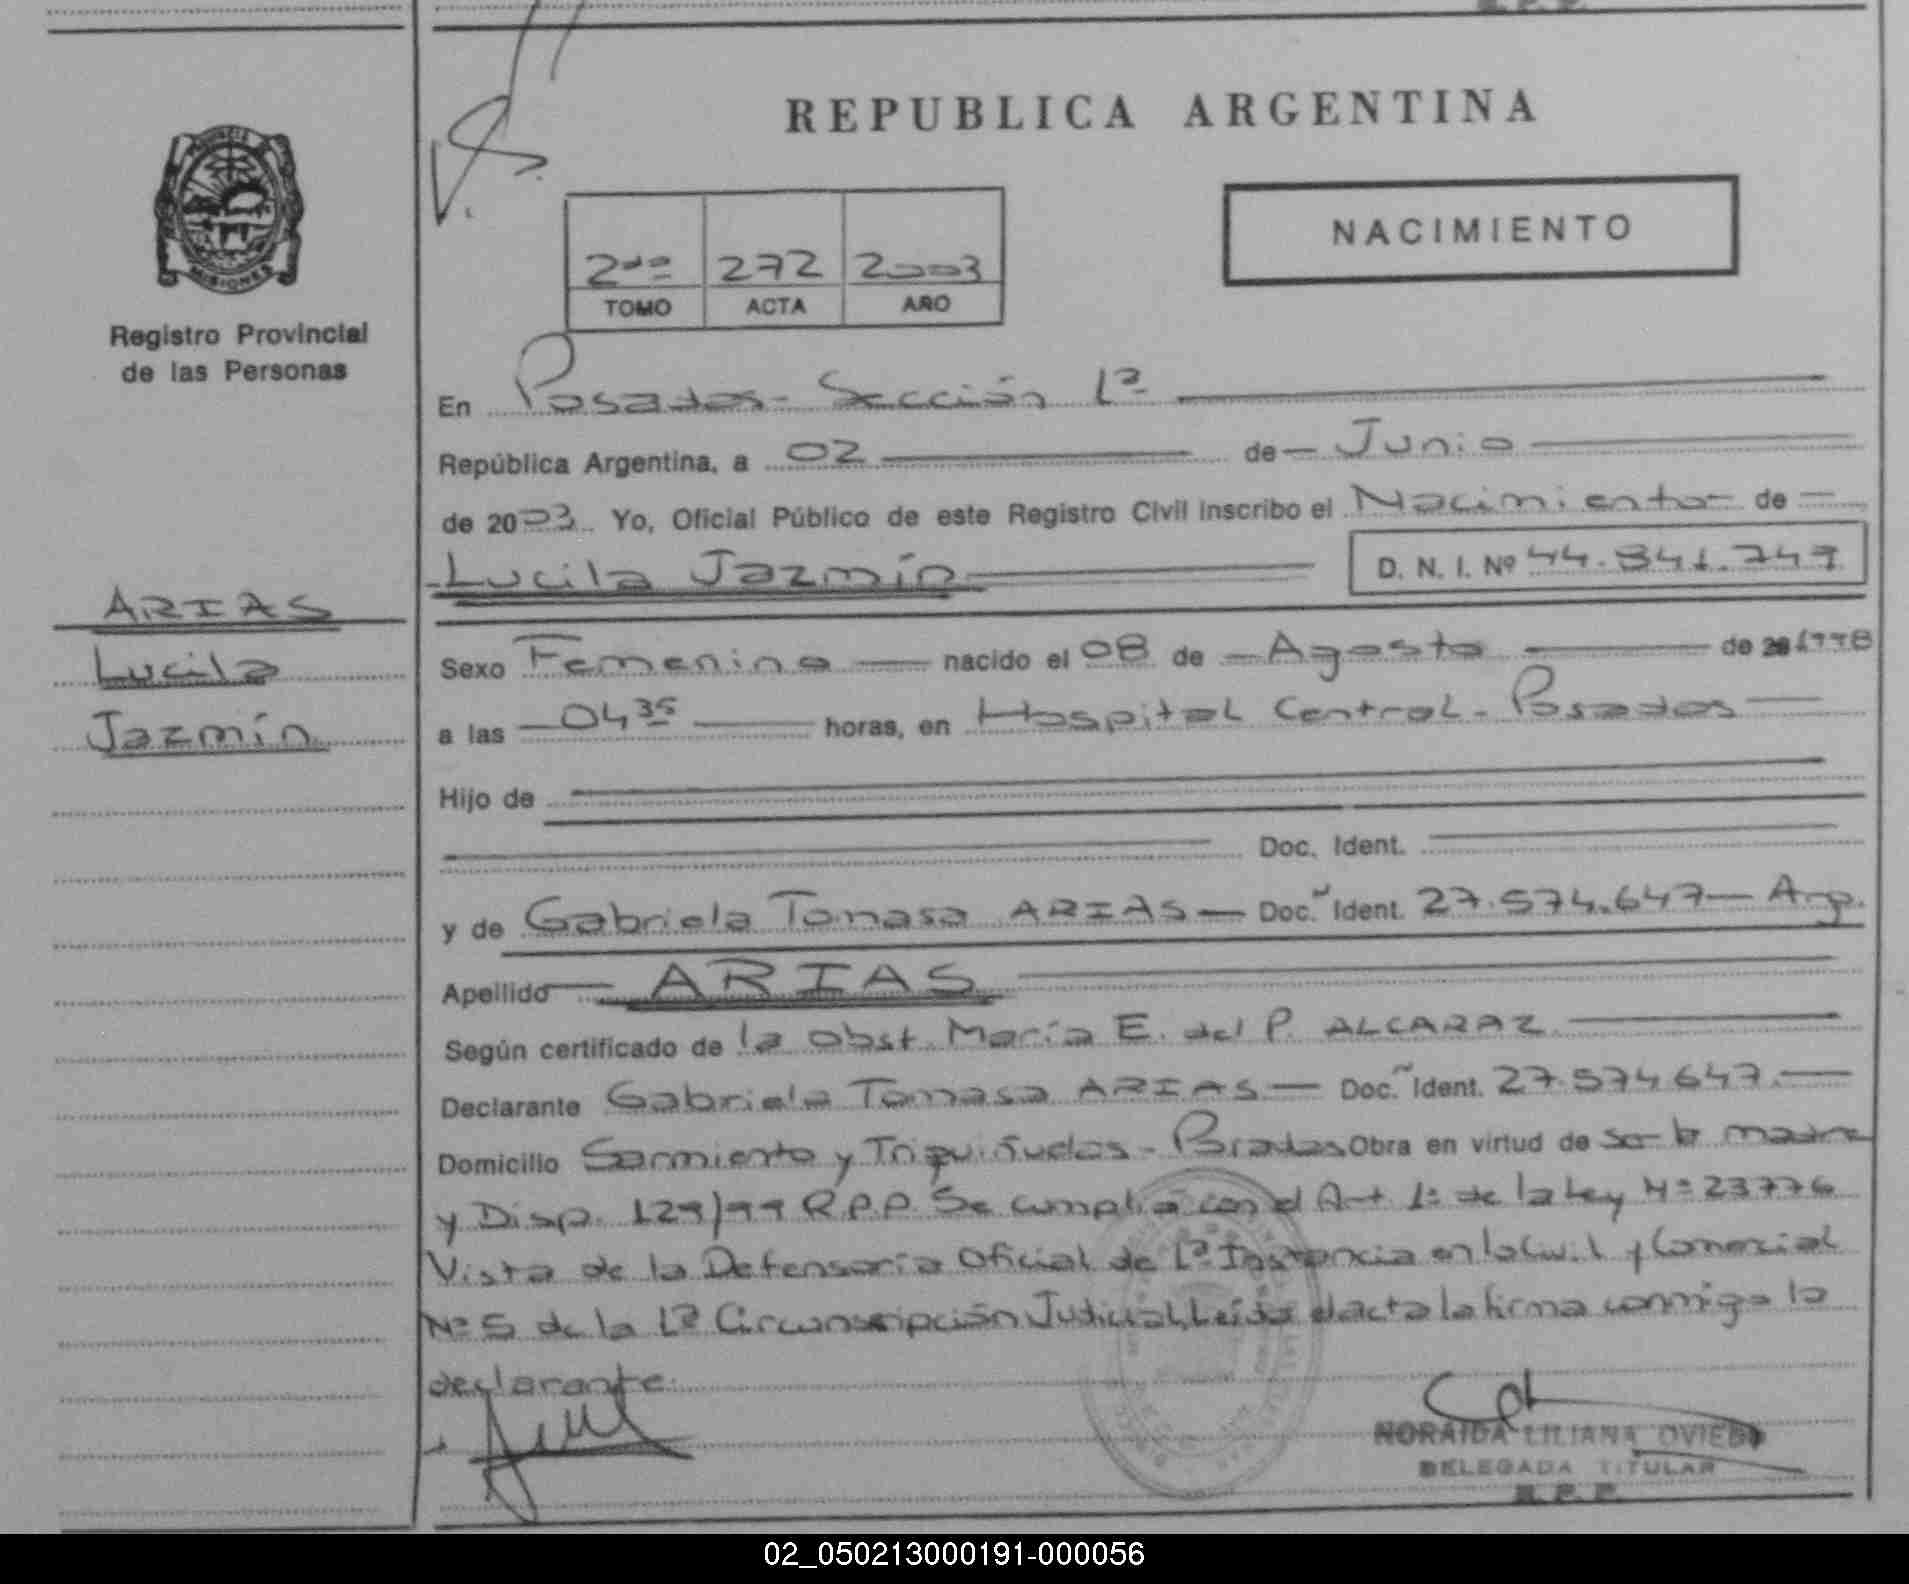 REPUBLICA ARGENTINA
NACIMIENTO
2do 272 2003
TOMO ACTA AÑO
MISIONES
Registro Provincial
de las Personas
ARIAS
Lucila
Jazmín
En Posadas - Sección 1ª
República Argentina, a 02 de Junio
de 2003 Yo, Oficial Público de este Registro Civil inscribo el Nacimiento de
Lucila Jazmín D. N. I. Nº 44.841.747
Sexo Femenino nacido el 08 de Agosto de 20 1998
a las 04 35 horas, en Hospital Central - Posadas
Hijo de
Doc. Ident.
y de Gabriela Tomasa ARIAS Doc. Ident. 27.574.647 Arg.
Apellido ARIAS
Según certificado de la Obst. María E. del P. ALCARAZ
Declarante Gabriela Tomasa ARIAS Doc. Ident. 27.574.647.
Domicilio Sarmiento y Triquiñuelas - Posadas Obra en virtud de ser la madre
y Disp. 129/99 R.P.P. Se cumplió con el Art 1º de la Ley Nº 23776
Vista de la Defensoría Oficial de 1ª Instancia en lo Civil y Comercial
Nº 5 de la 1ª Circunscripción Judicial, Leída el acta la firma conmigo la
declarante.
NORAIDA LILIANA OVIEDO
DELEGADA TITULAR
R.P.P.
02_050213000191-000056